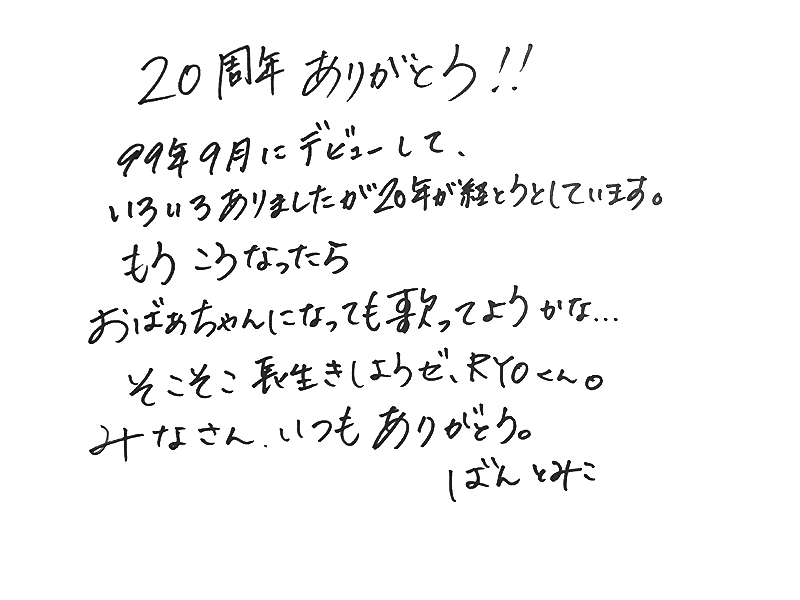 20周年ありがとう!!
99年9月にデビューして、
いろいろありましたが20年が経とうとしています。
もうこうなったら
おばあちゃんになっても歌ってようかな...
そこそこ長生きしようぜ、RYOくん。
みなさん、いつもありがとう。
ばんとみこ